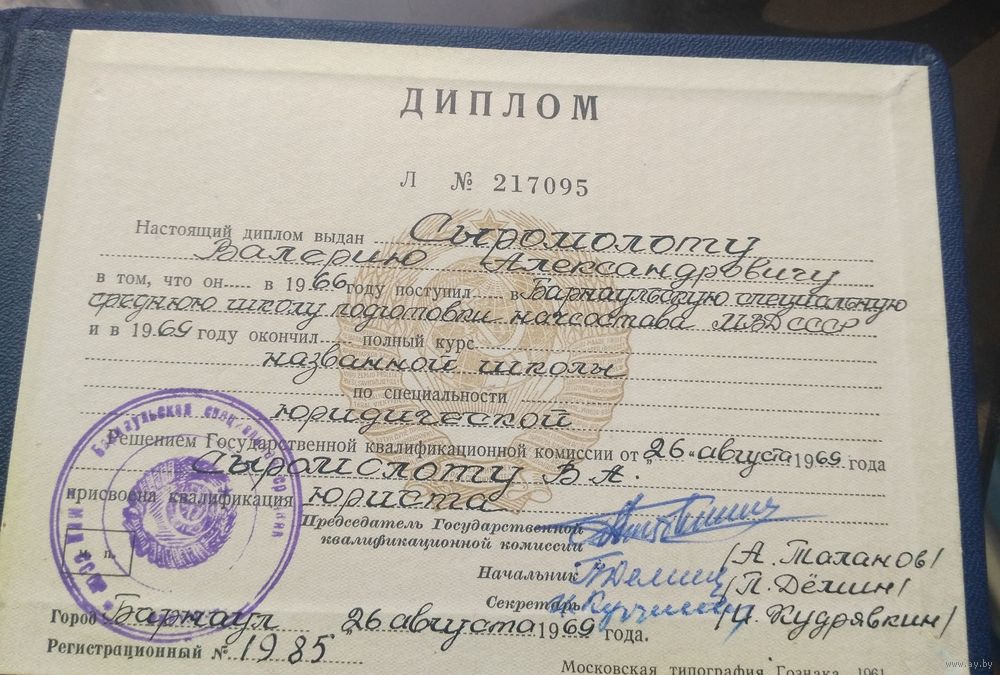 ДИПЛОМ
Л № 217095
Настоящий диплом выдан Сыромолоту
Валерию Александровичу
в том, что он в 1966 году поступил в Барнаульскую специальную
среднюю школу подготовки начсостава МВД СССР
и в 1969 году окончил полный курс
названной школы
по специальности
юридической
Решением Государственной квалификационной комиссии от „26" августа 1969 года
Сыромолоту В. А.
присвоена квалификация юриста
Председатель Государственной
квалификационной комиссии
/А. Таланов/
Начальник /П. Дёмин/
Секретарь /И. Кудрявкин/
М. п.
Город Барнаул „26 августа 1969 года.
Регистрационный № 1985
Московская типография Гознака. 1961.
www.ay.by